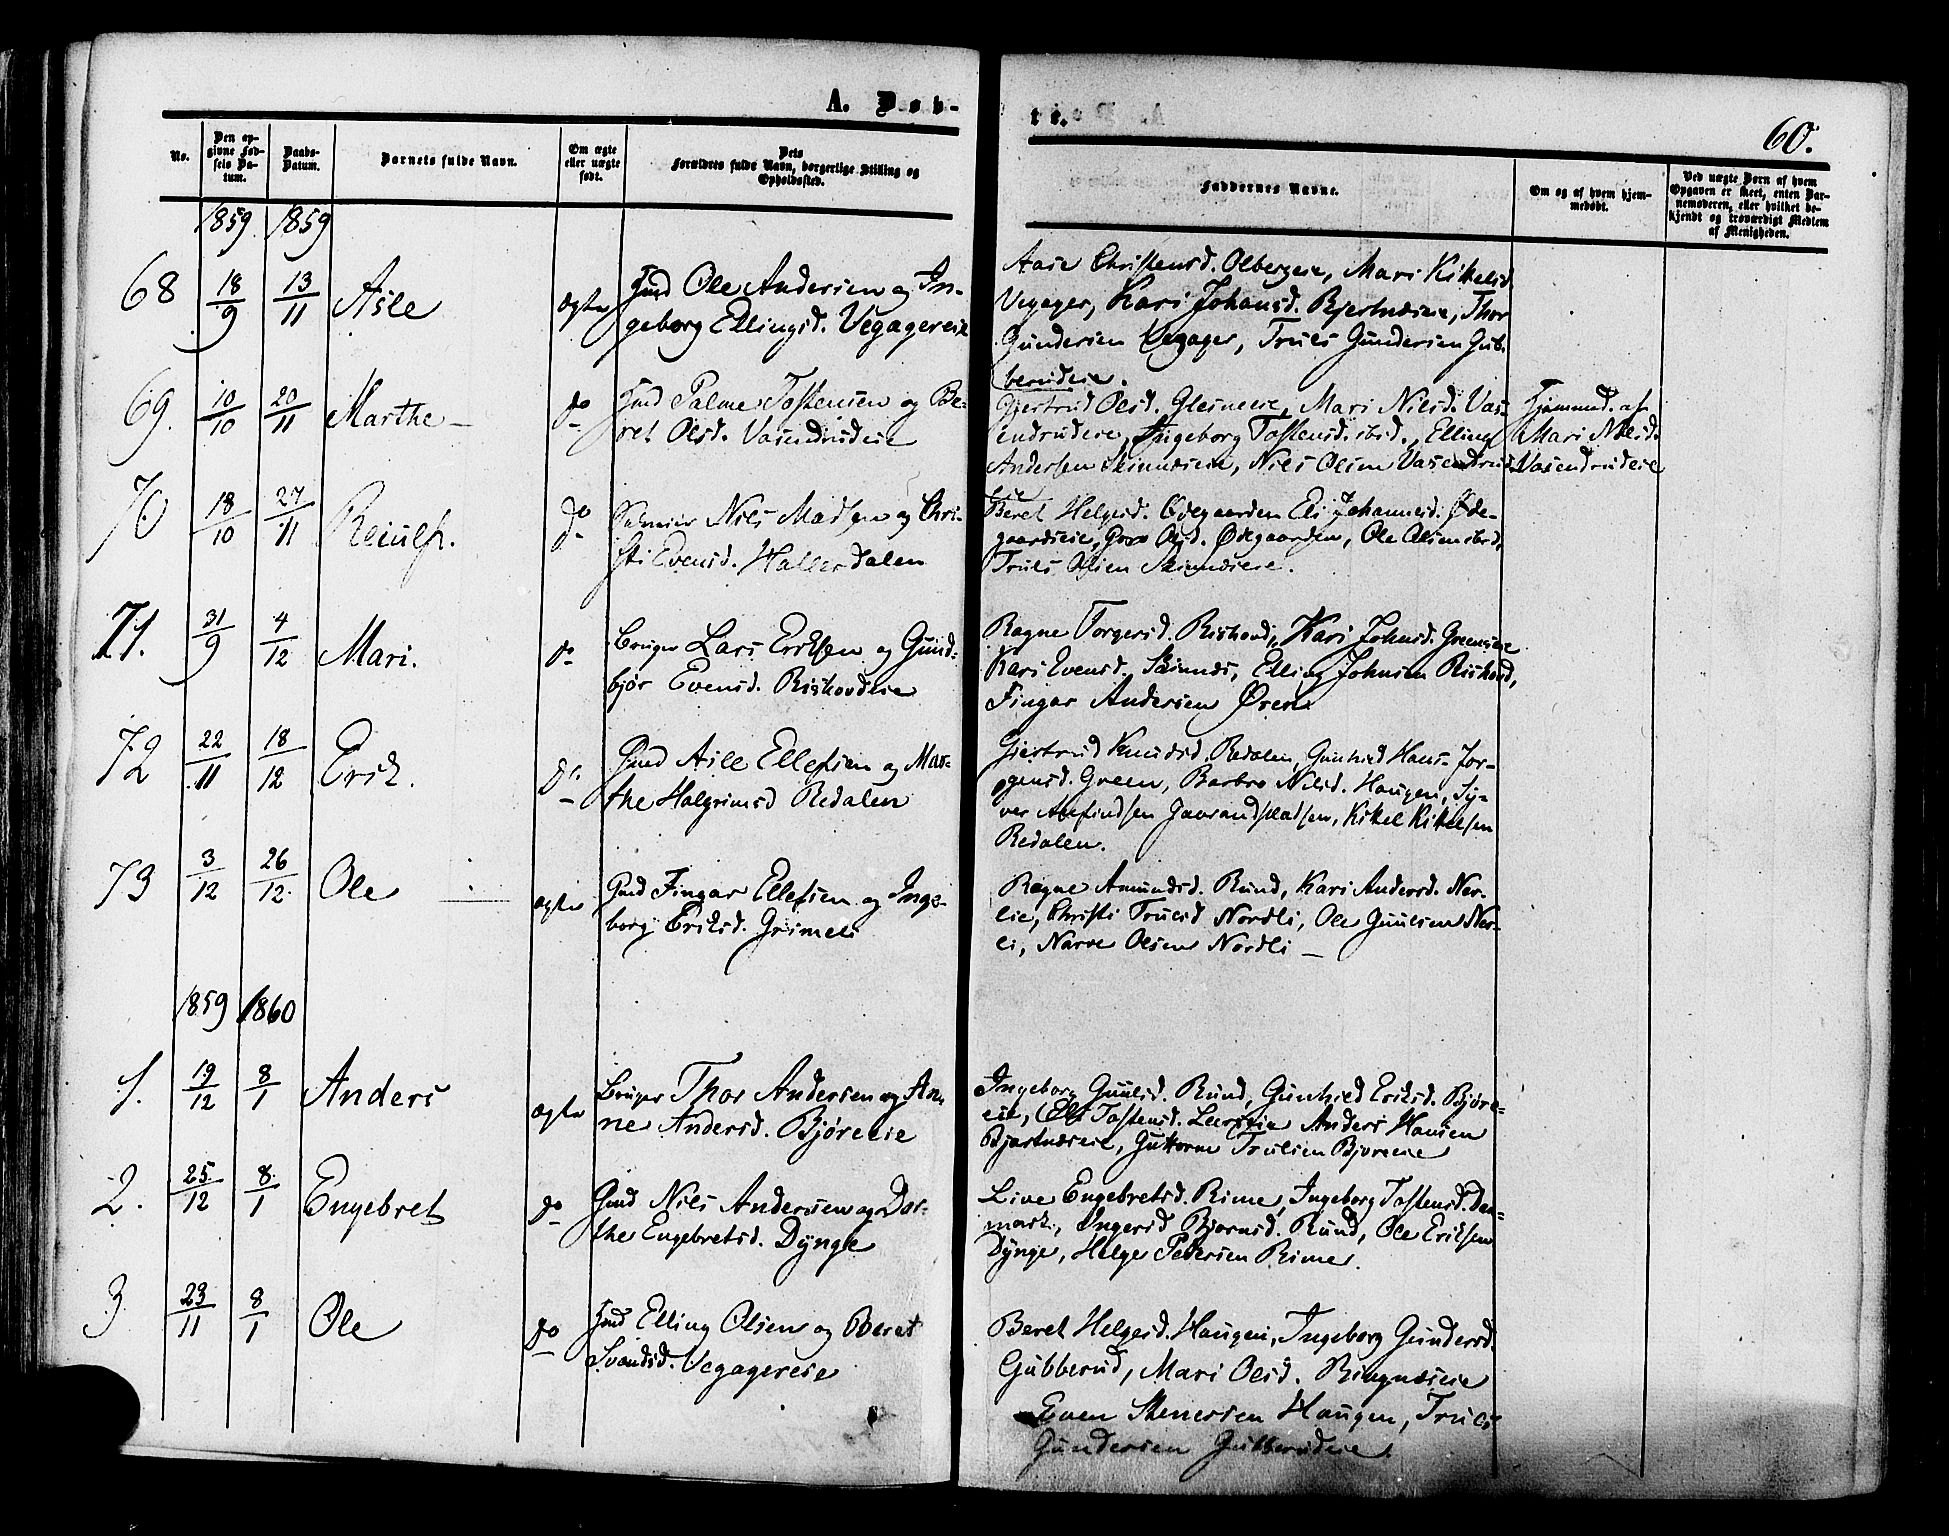 A. Døb-
te.
60.
No.
Den op-
givne Fød-
sels Da-
tum.
Daabs-
Datum.
Barnets fulde Navn.
Om ægte
eller uægte
født.
Dets
Forældres fulde Navn, borgerlige Stilling og
Opholdssted.
Faddernes Navne.
Om og af hvem hjem-
medøbt.
Ved uægte Børn af hvem
Opgaven er skeet, enten Bar-
nemoderen, eller hvilket be-
kjendt og troværdigt Medlem
af Menigheden.
1859. 1859
68 18/9 13/11 Asle ægte Gmd Ole Andersen og In-
geborg Ellingsd. Vegagereie
Aase Christensd. Olbergeie, Mari Kittelsd
Vegager, Kari Johansd. Bjertnæseie, Thor
Gundersen Vegager, Truls Gundersen Gub-
berudeie.
69. 10/10 20/11 Marthe - do Gmd Palme Tostensen og Be-
ret Olsd. Vasendrudeie
Gjertrud Olsd. Glesneeie, Mari Nilsd. Vas-
endrudeie, Ingeborg Tostensd. ibid., Elling
Andersen Skinnæseie, Nils Olsen Vasendrud
Hjemmed. af
Mari Nilsd.
Vasendrudeie
70 18/10 27/11 Reiulf. do Nils Madsen og Chri-
sti Evensd. Hallerdalen
Beret Helgesd. Ødegaarden Eli Johannesd. Øde-
gaardseie, Goro Olsd. Ødegaarden, Ole Olsen ibid,
Truls Olsen Skinnæseie.
71. 31/9 4/12 Mari. do Bruger Lars Eriksen og Gund-
bjør Evensd. Rishovdeie
Ragne Torgersd. Rishovd, Kari Johnsd. Greeneie
Kari Evensd. Skinnes, Elling Johnsen Rishovd,
Fingar Andersen Øren
72 22/11 18/12 Erik. do Gmd Asle Ellefsen og Mar-
the Halgrimsd Redalen
Gjertrud Knudsd. Redalen, Gunhild Hans Jør-
gensd. Green, Barbro Nilsd. Haugen, Sy-
ver Aslefindsen Gaarandpladsen, Kittel Kittelsen
Redalen.
73 3/12 26/12. Ole ægte Gmd Fingar Ellefsen og Inge-
borg Eriksd. Grimeli
Ragne Amundsd. Rund, Kari Andersd. Ner-
lie, Christi Trulsd Nordli, Ole Guulsen Ner-
li, Narve Olsen Nordli -
1859 1860
1. 19/12 8/1 Anders ægte Bruger Thor Andersen og An-
ne Andersd. Bjøreeie
Ingeborg Guulsd. Rund, Gunhild Eriksd. Bjøre-
eie, Eli Tostensd. Anders Hansen
Bjertnæseie, Guttorm Trulsen Bjøreeie
2. 25/12 8/1 Engebret do Gmd Nils Andersen og Dor-
the Engebretsd. Dynge
Live Engebretsd. Rime, Ingeborg Tostensd. Dan-
mark, Ingerid Bjørnsd. Rund, Ole Eriksen
Dynge, Helge Petersen Rime.
3 23/11 8/1 Ole do Gmd Elling Olsen og Beret
Svendsd. Vegagereie
Beret Helgesd. Haugen, Ingeborg Gundersd.
Gubberud, Mari Olsd. Ringnæseie
Even Stenersen Haugen, Truls
Gundersen Gubberudeie.